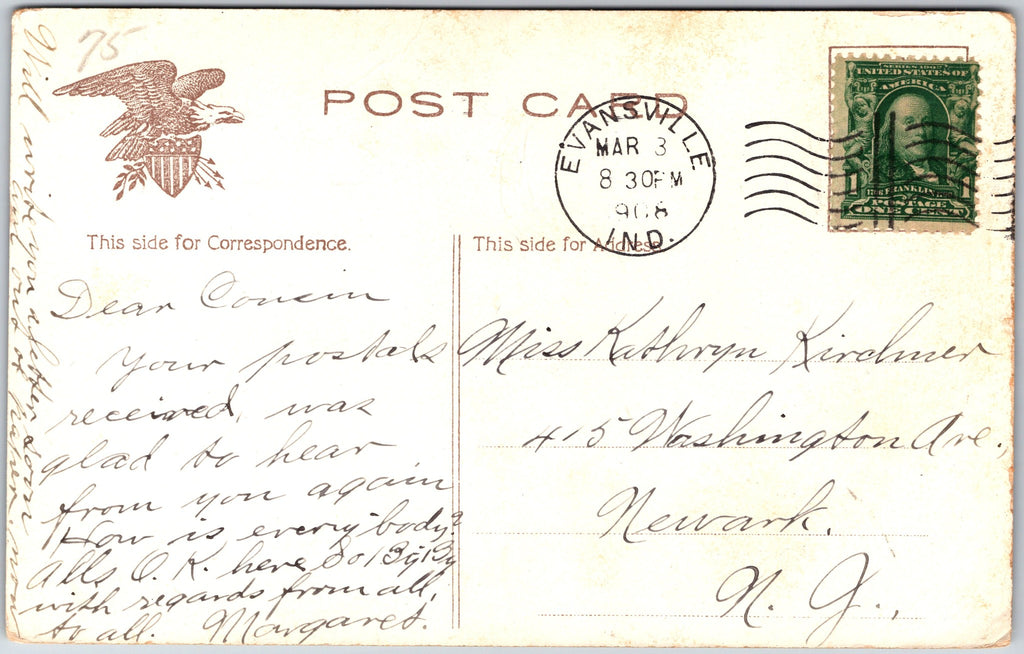 75
POST CARD
EVANSVILLE
MAR 3
8 30PM
1908
IND.
SERIES 1902
UNITED STATES OF
AMERICA
1 FRANKLIN 1
POSTAGE
ONE CENT
This side for Correspondence.
This side for Address.
Dear Cousin
Your postals
received, was
glad to hear
from you again
How is everybody?
Alls O. K. here So By By
with regards from all,
to all. Margaret.
Will write you a letter soon
out of paper now
Miss Kathryn Kirchner
415 Washington Ave.,
Newark.
N. J.,